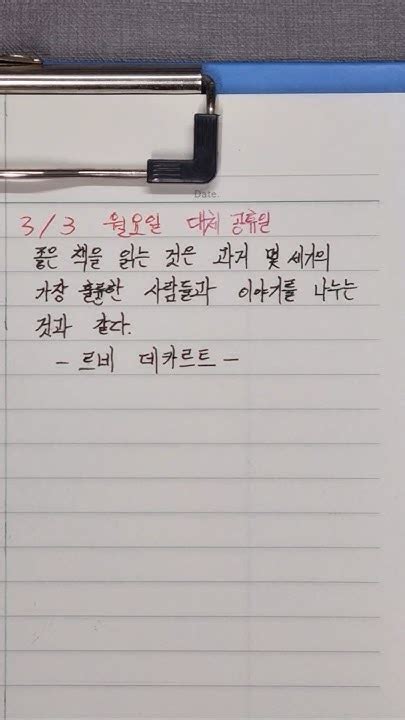 Date.
3/3 월요일 대체 공휴일
좋은 책을 읽는 것은 과거 몇 세기의
가장 훌륭한 사람들과 이야기를 나누는
것과 같다.
- 르네 데카르트 -